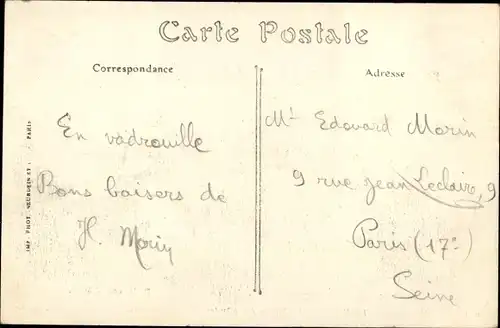 Carte Postale
Correspondance
Adresse
En vadrouille
Bons baisers de
H. Morin
Mr Edouard Morin
9 rue Jean Leclaire, 9
Paris (17e
Seine
IMP. PHOT. NEURDEIN ET PARIS